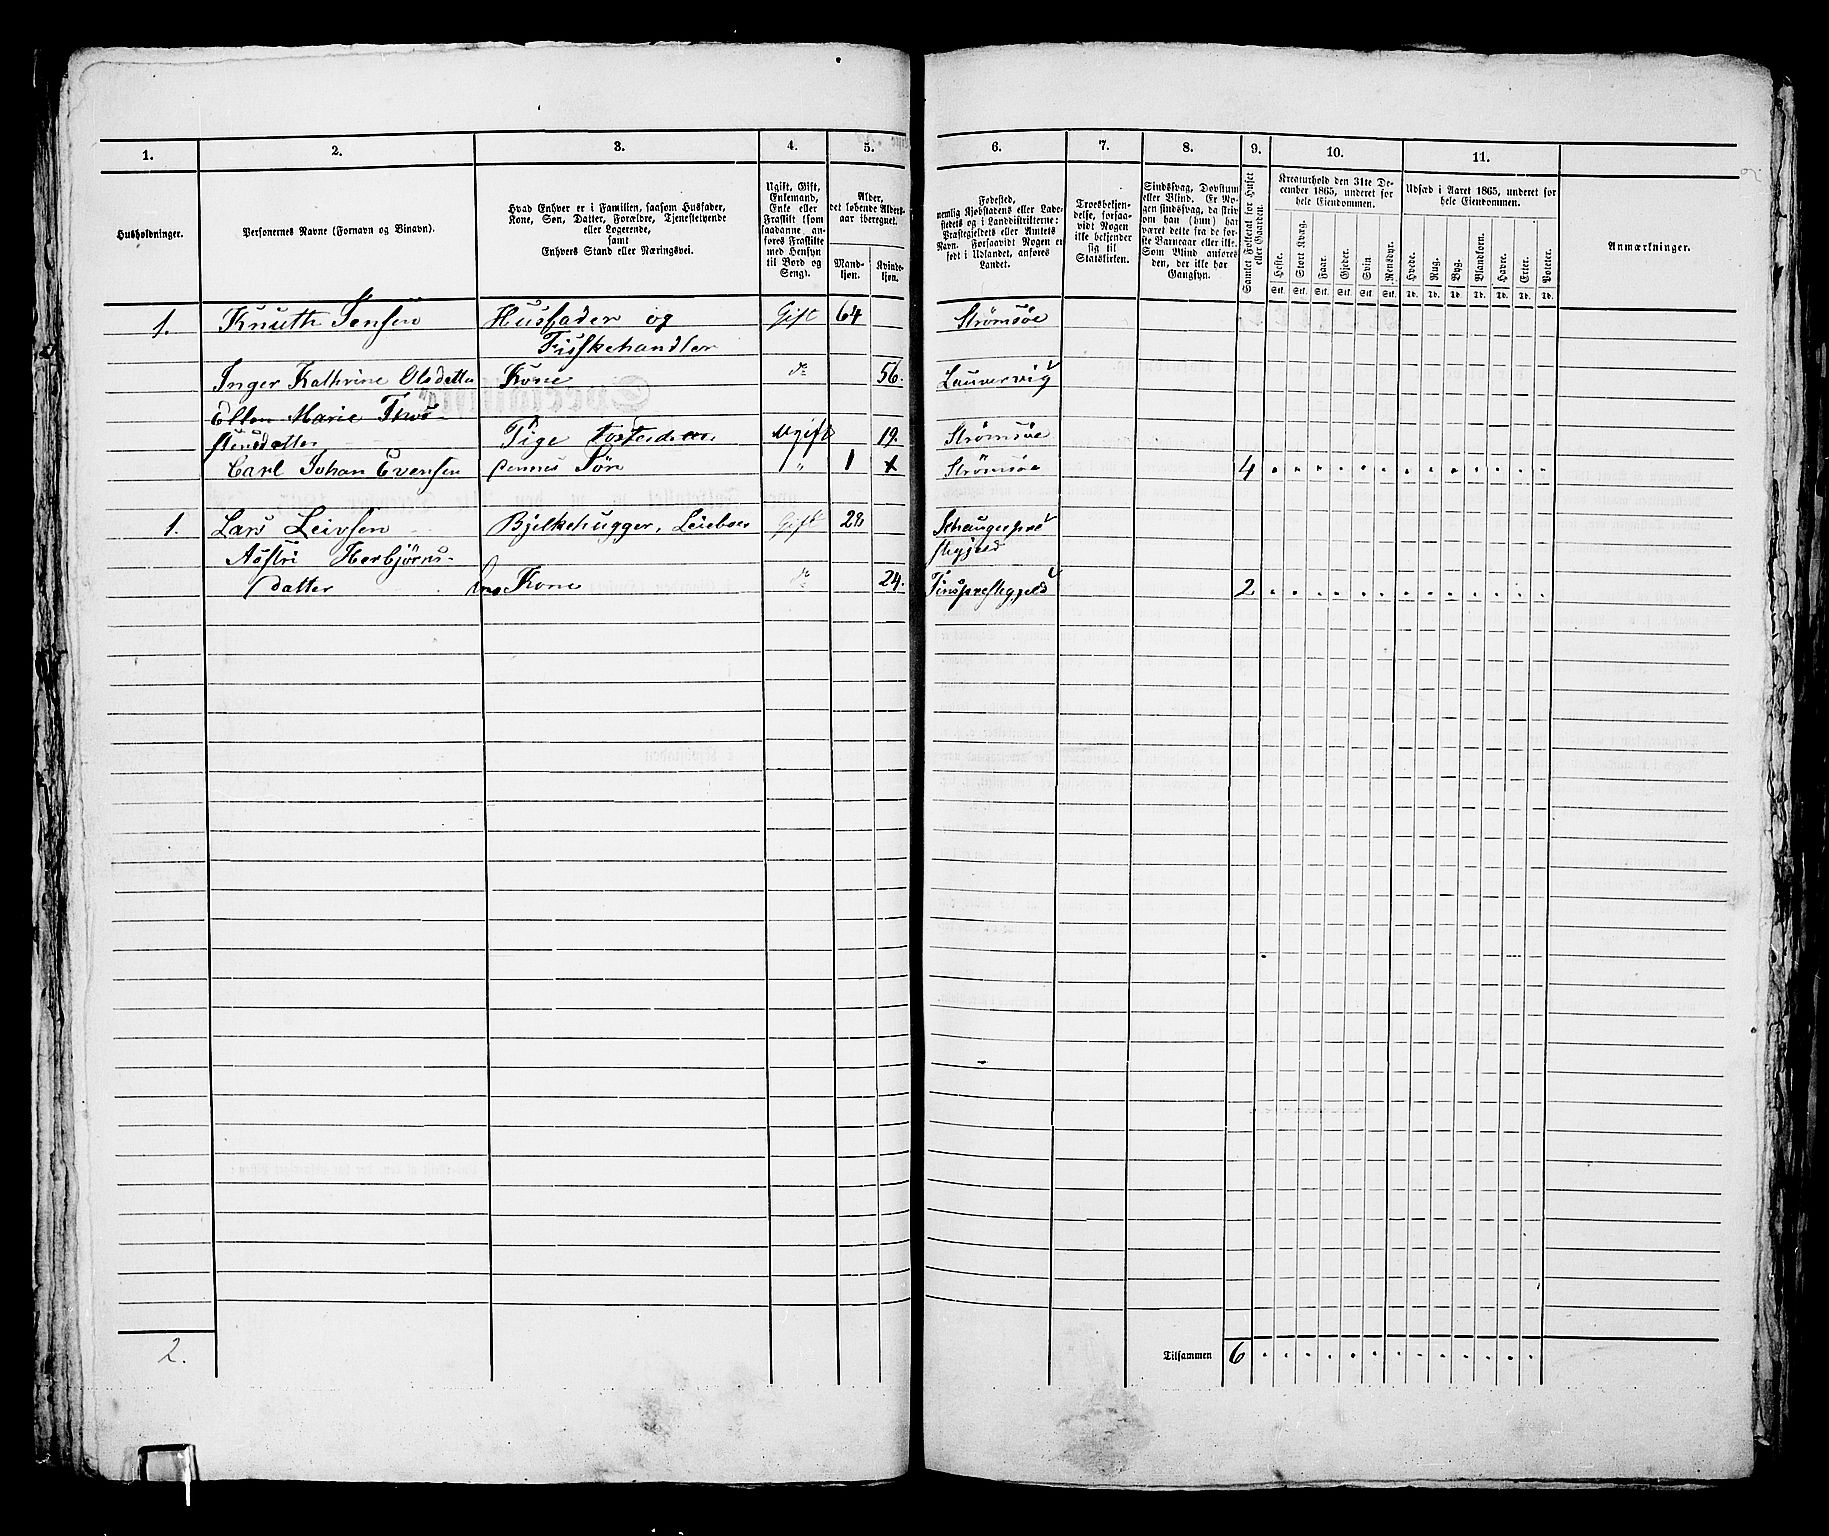 1. 2. 3. 4. 5. 6. 7. 8. 9. 10. 11.
Husholdninger.
Personernes Navne (Fornavn og Binavn).
Hvad Enhver er i Familien, saasom Husfader,
Kone, Søn, Datter, Forældre, Tjenestetyende
eller Logerende,
samt
Enhvers Stand eller Næringsvei.
Ugift, Gift,
Enkemand,
Enke eller
Fraskilt (som
saadanne an-
føres Fraskilte
med Hensyn
til Bord og
Seng).
Alder,
det løbende Alders-
aar iberegnet.
Mand-
kjøn.
Kvinde-
kjøn.
Fødested,
nemlig Kjøbstadens eller Lade-
stedets og i Landdistrikterne:
Præstegjeldets eller Amtets
Navn. Forsaavidt Nogen er
født i Udlandet, anføres
Landet.
Troesbekjen-
delse, forsaa-
vidt Nogen
ikke bekjender
sig til
Statskirken.
Sindssvag, Døvstum
eller Blind. Er No-
gen sindssvag, da skriv
om han (hun) har
været dette fra de før-
ste Barneaar eller ikke.
Som Blind anføres
den, der ikke har
Gangsyn.
Samlet Folketal for Huset
eller Gaarden.
Kreaturhold den 31te De-
cember 1865, underet for
hele Eiendommen.
Heste. Stort Kvæg. Faar. Gjeder. Svin. Rensdyr.
Stk. Stk. Stk. Stk. Stk. Stk.
Udsæd i Aaret 1865, underet for
hele Eiendommen.
Hvede. Rug. Byg. Blandkorn. Havre. Erter. Poteter.
Td. Td. Td. Td. Td. Td. Td.
Anmærkninger.
1. Knuth Jensen Husfader og Gift 64 Strømsøe
Fiskehandler
Inger Kathrine Olsdatter Kone do 56. Laurvig
Ellen Marie
stensdatter Pige Ugift 19. Strømsøe
Carl Johan Evensen Søn " 1 Strømsøe 4
1. Lars Leivsen Bjelkehugger, Gift 28
Aastri Herbjørns-
datter hans Kone do 24. Tinspræstegjeld 2
2. Tilsammen 6